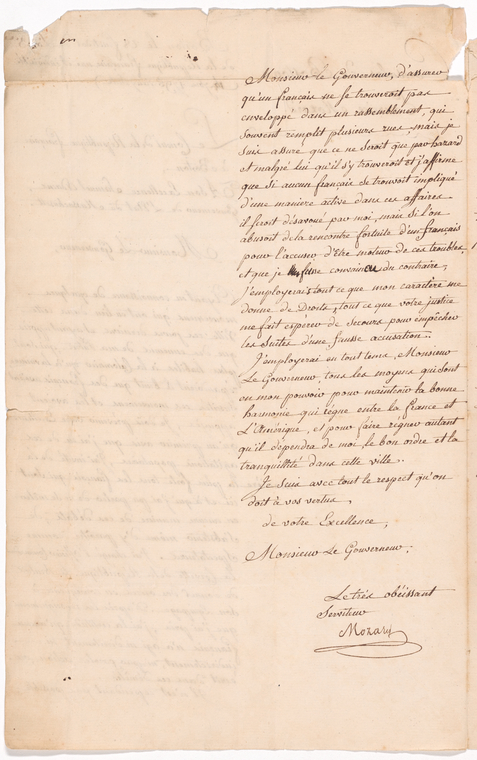 en
Monsieur le Gouverneur, d'assurer
qu'un français ne se trouveroit pas
enveloppé dans un rassemblement, qui
souvent remplit plusieurs rues, mais je
suis assuré que ce ne seroit que par hazard
et malgré lui qu'il s'y trouveroit et j'affirme
que si aucun français se trouvoit impliqué
d'une manière active dans ces affaires
il seroit désavoué par moi, mais si l'on
abusoit de la rencontre fortuite d'un français
pour l'accuser d'être moteur de ces troubles,
et que je fusse convaincu du contraire,
j'employerais tout ce que mon caractère me
donne de Droits, tout ce que votre justice
me fait espérer de secours pour empêcher
les suites d'une fausse accusation.
J'employerai en tout tems, Monsieur
Le Gouverneur, tous les moyens qui sont
en mon pouvoir pour maintenir la bonne
harmonie qui règne entre la france et
L'Amérique, et pour faire régner autant
qu'il dépendra de moi, le bon ordre et la
tranquillité dans cette ville.
Je suis avec tout le respect qu'on
doit à vos vertus,
de votre Excellence,
Monsieur Le Gouverneur,
Le très obéissant
Serviteur
Mozard